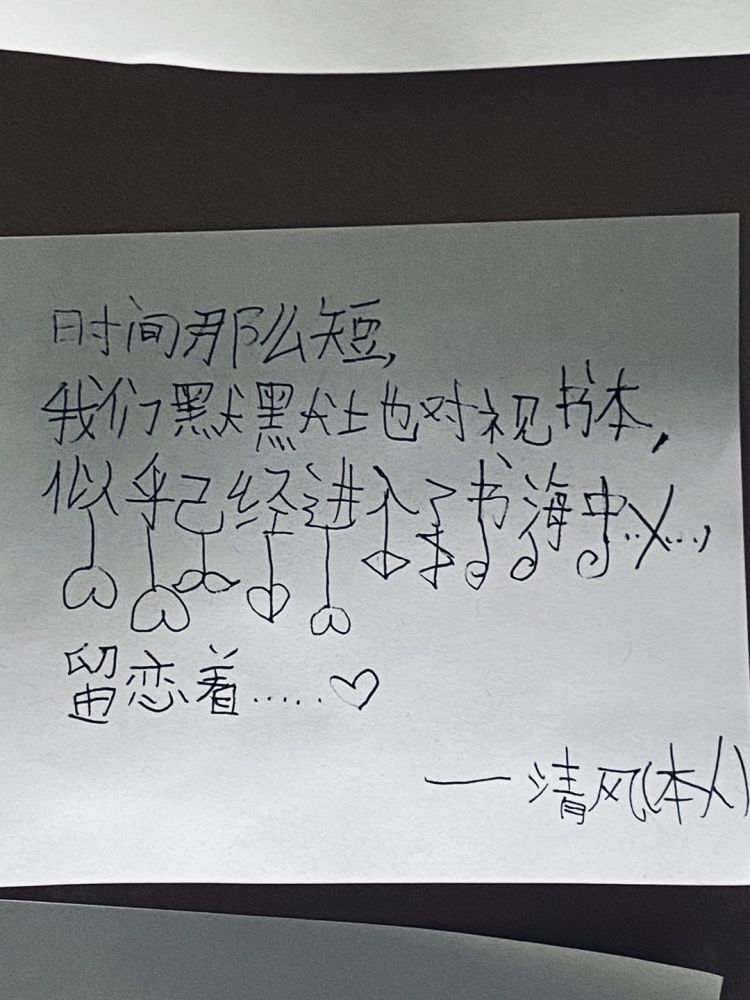 时间那么短,
我们默默地对视书本,
似乎已经进入了书海中……,
留恋着……♡
——清风(本人)